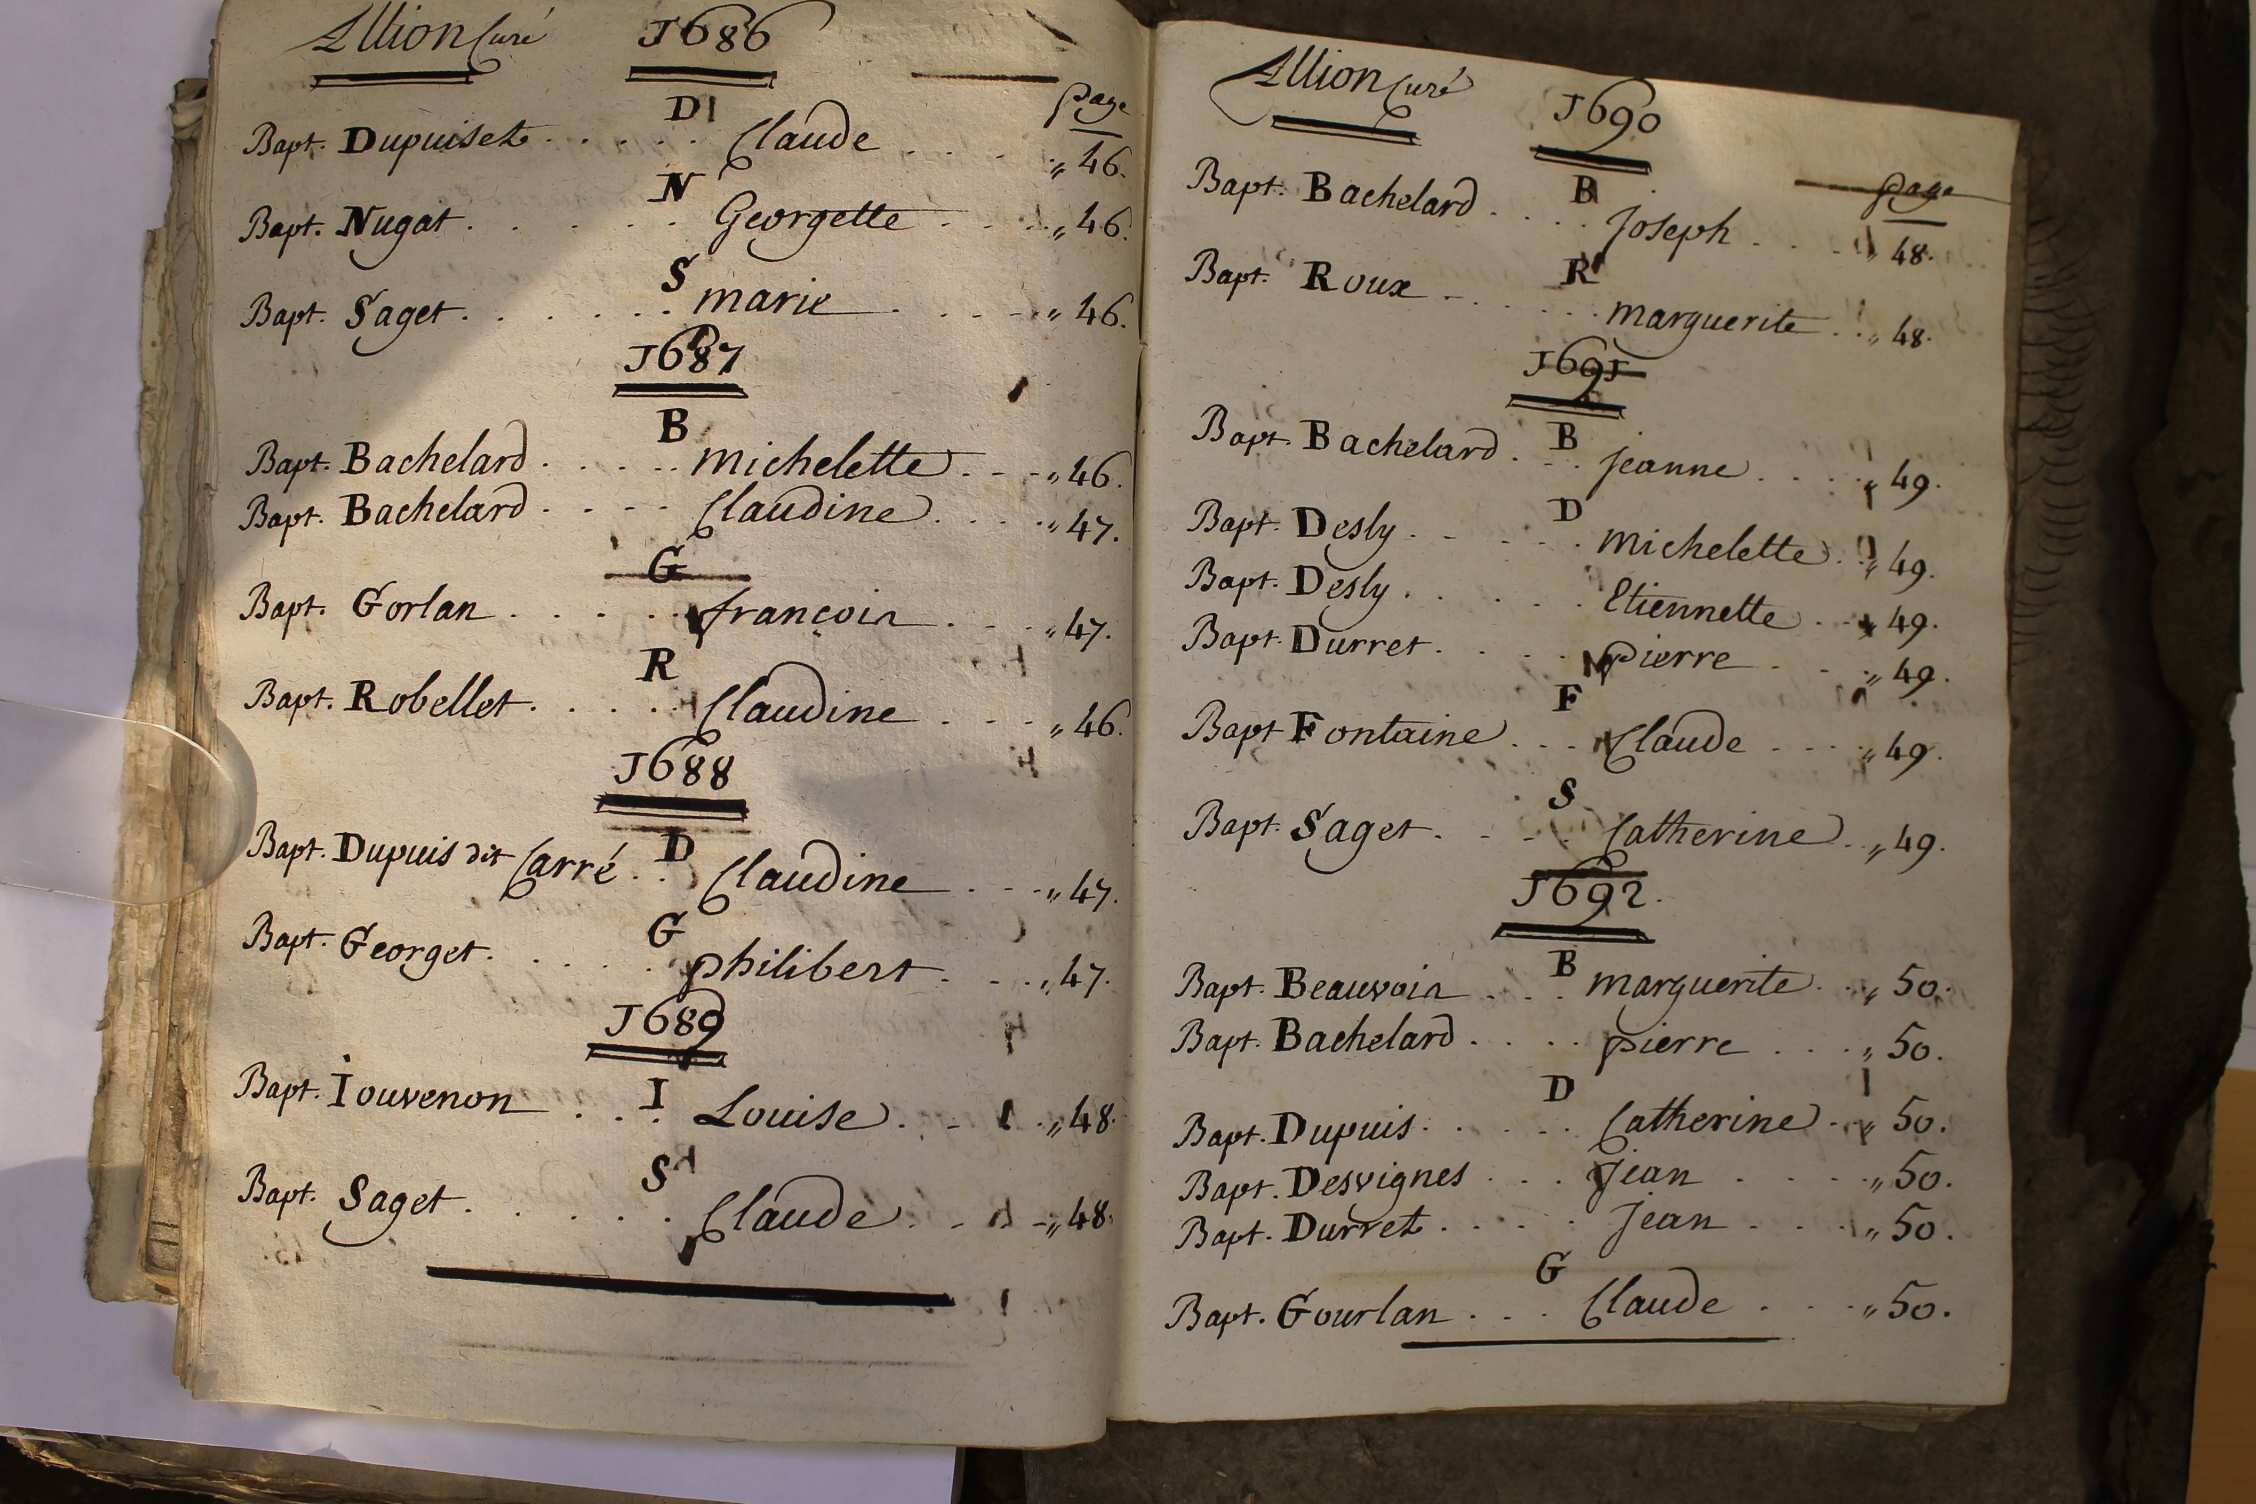 Allion Curé 1686
page
D
Bapt. Dupuiset . . . . . Claude . . . . „ 46.
N
Bapt. Nugat . . . . . . Georgette . . . . „ 46.
S
Bapt. Saget . . . . . . . marie . . . . . „ 46.
1687
B
Bapt. Bachelard . . . . . michelette . . . „ 46.
Bapt. Bachelard . . . . . Claudine . . . . „ 47.
G
Bapt. Gorlan . . . . . . françois . . . . „ 47.
R
Bapt. Robellet . . . . . Claudine . . . . „ 46.
1688
D
Bapt. Dupuis dit Carré . . Claudine . . . . „ 47.
G
Bapt. Georget . . . . . . philibert . . . . „ 47.
1689
I
Bapt. Iouvenon . . . . Louise . . . „ 48.
S
Bapt. Saget . . . . . . Claude . . . „ 48.
Allion Curé 1690
page
B
Bapt. Bachelard . . . . Joseph . . . . „ 48.
R
Bapt. Roux . . . . . . marguerite . . „ 48.
1691
B
Bapt. Bachelard . . . . jeanne . . . . „ 49.
D
Bapt. Desly . . . . . . michelette . . „ 49.
Bapt. Desly . . . . . . Etiennette . . „ 49.
Bapt. Durret . . . . . pierre . . . . „ 49.
F
Bapt Fontaine . . . Claude . . . . „ 49.
S
Bapt. Saget . . . . Catherine . . „ 49.
1692.
B
Bapt. Beauvois . . . . marguerite . . „ 50.
Bapt. Bachelard . . . . pierre . . . . „ 50.
D
Bapt. Dupuis . . . . . . Catherine . . „ 50.
Bapt. Desvignes . . . Jean . . . . . „ 50.
Bapt. Durret . . . . . Jean . . . . „ 50.
G
Bapt. Gourlan . . . Claude . . . . „ 50.